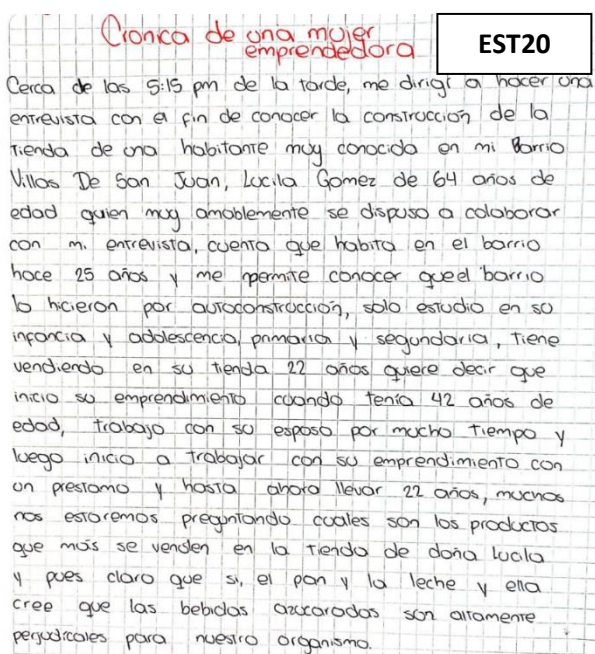 Cronica de una mujer
emprendedora
EST20
Cerca de las 5:15 pm de la tarde, me dirigi a hacer una
entrevista con el fin de conocer la construcción de la
tienda de una habitante muy conocida en mi Barrio
Villas De San Juan, Lucila Gomez de 64 años de
edad quien muy amablemente se dispuso a colaborar
con mi entrevista, cuenta que habita en el barrio
hace 25 años y me permite conocer que el barrio
lo hicieron por autoconstrucción, solo estudio en su
infancia y adolescencia, primaria y segundaria, tiene
vendiendo en su tienda 22 años quiere decir que
inicio su emprendimiento cuando tenía 42 años de
edad, trabajo con su esposo por mucho tiempo y
luego inicio a trabajar con su emprendimiento con
un prestamo y hasta ahora llevar 22 años, muchos
nos estaremos preguntando cuales son los productos
que más se venden en la tienda de doña lucila
y pues claro que si, el pan y la leche y ella
cree que las bebidas azucaradas son altamente
perjudicales para nuestro organismo.